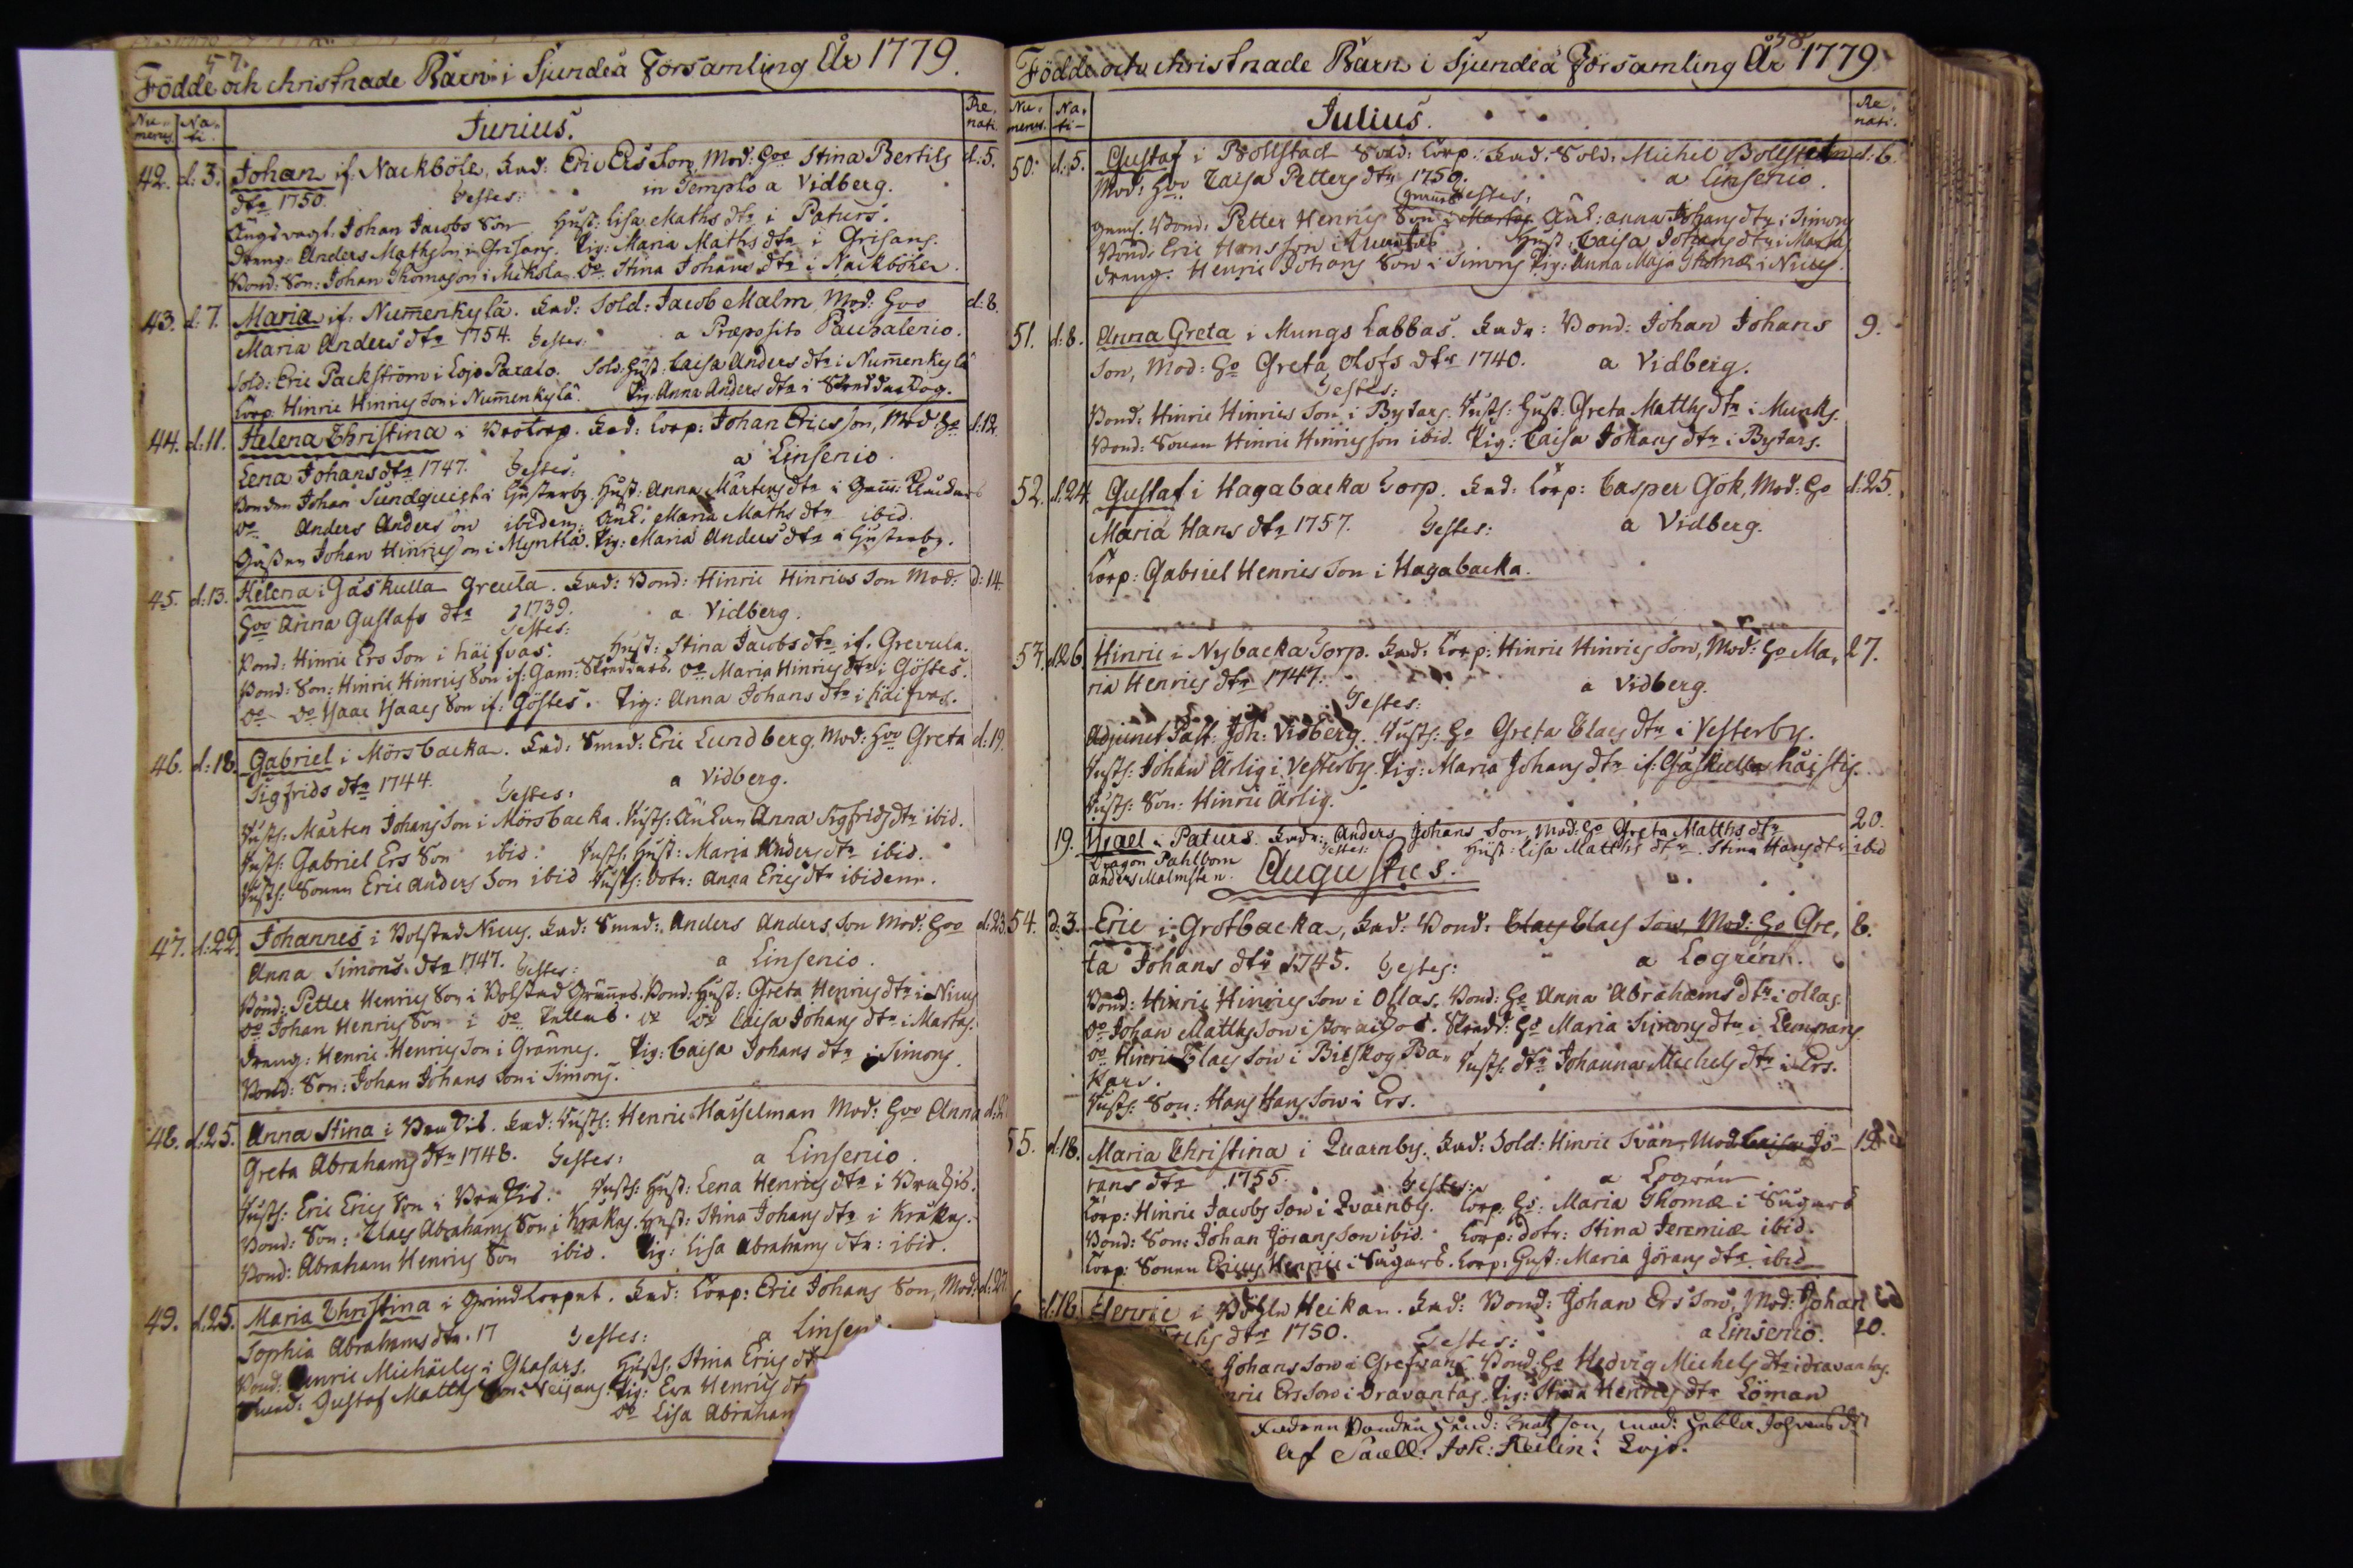 57.
Födde och christnade Barn i Sjundeå Församling År 1779.
Numerus Nati. Junius. Renati.
42. d: 3. Johan if: Nackböle, Fad: Eric Ers Son, Mod: Hoo Stina Bertils d: 5.
dtr 1750. Testes: in Templo a Vidberg.
Ängsvagt. Johan Jacobs Son Hust: Lisa Maths dtr i Paturs.
Dreng: Anders Mathson i Grisans. Pig: Maria Maths dtr i Grisans.
Bond: Son: Johan Thomason i Mikola. Do Stina Johans dtr i Nackböle.
43. d: 7. Maria if: Num̄enkylä. Fad: Sold: Jacob Malm, Mod: Hoo d: 8.
Maria Anders dtr 1754. Testes: a Præposito Paupalenio.
Sold: Eric Packström i Lojo Paxalo. Sold: Hust: Caisa Anders dtr i Num̄enkylä
Torp. Hinric Hinrics Son i Num̄enkylä. Pig: Anna Anders dtr i
44. d: 11. Helena Christina i Brotorp. Fad: Torp: Johan Ericsson, Mod: Ho d: 12.
Lena Johansdtr 1747. Testes: a Linsenio.
Bonden Johan Sundquist i Gusterby. Hust: Anna Mårtens dtr i
Do Anders Anders son ibidem. Änk: Maria Maths dtr ibid.
Johan Hinricson i Myntlä. Pig: Maria Anders dtr i Gusterby.
45. d: 13. Helena i Gåskulla Greula. Fad: Bond: Hinric Hinrics Son Mod: d: 14.
Hoo Anna Gustafs dtr 1739. a Vidberg.
Testes:
Bond: Hinric Ers Son i häifvas. Hust: Stina Jacobs dtr if. Grevula.
Bond: Son: Hinric Hinrics Son if: Gam: Skreddars. Do Maria Hinrics dtr i Göstes.
Do Do Isaac Isaacs Son if: Göstes. Pig: Anna Johans dtr i häifvas.
46. d: 18. Gabriel i Mörsbacka. Fad: Smed: Eric Lundberg, Mod: Hoo Greta d: 19.
Sigfrids dtr 1744. Testes: a Vidberg.
Mårten Johans Son i Mörsbacka. Änkan Anna Sigfrids dtr ibid.
Gabriel Ers Son ibid. Hust: Maria Anders dtr ibid.
Sonen Eric Anders Son ibid Dotr: Anna Erics dtr ibidem.
47. d: 22. Johannes i Bolstad Nicus. Fad: Smed: Anders Anders Son Mod: Hoo d: 23.
Anna Simons dtr 1747. Testes: a Linsenio.
Bond: Petter Henrics Son i Bolstad Gränns. Bond: Hust: Greta Henrics dtr i Nicus
Do Johan Henrics Son i Do Do Do Caisa Johans dtr i Martas.
Dreng: Henric Henrics Son i Gränns. Pig: Caisa Johans dtr i Simons.
Bond: Son: Johan Johans Son i Simons.
48. d: 25. Anna Stina i Fad: Henric Hasselman Mod: Hoo Anna
Greta Abrahams dtr 1748. Testes: a Linsenio.
Eric Erics Son i Hust: Lena Henrics dtr i
Bond: Son: Claes Abrahams Son i Krakas. Hust: Stina Johans dtr i Krakas.
Bond: Abraham Henrics Son ibid. Pig: Lisa Abrahams dtr: ibid.
49. d: 25. Maria Christina i Grindtorpet. Fad: Torp: Eric Johans Son, Mod: d: 27
Sophia Abrahams dtr. 17 Testes: a Linsen
Bond: Henric Michaels i Ghasars. Hust: Stina Erics dt
Gustaf Matths Son i Pig: Eva Henrics dt
Do Lisa Abraham
58.
Födde och christnade Barn i Sjundeå Församling År 1779
Numerus. Nati– Julius. Renati.
50. d: 5. Gustaf i Bollstad Sold: Torp: Fad: Sold: Michel Bollstedn d: 6.
Mod: Hoo Caisa Petters dtr 1750. a Linsenio.
Testes:
Bond: Petter Henrics Son i Martas Änk: Anna Johans dtr i Simons
Bond: Eric Hans Son i Hust: Caisa Johans dtr i Martas.
Dreng. Henric Johans Son i Simons Pig: Anna Maja Thomæ i Nicus.
51. d: 8. Anna Greta i Mungs Labbas. Fadr: Bond: Johan Johans 9.
Son, Mod: Ho Greta Olofs dtr 1740. a Vidberg.
Testes:
Bond: Hinric Hinrics Son i Bytars. Hust: Greta Matths dtr i Munks.
Bond: Sonen Hinric Hinricsson ibid. Pig: Caisa Johans dtr i Bytars.
52. d: 24. Gustaf i Hagabacka Torp. Fad: Torp: Casper Gök, Mod: Ho d: 25.
Maria Hans dtr 1757. Testes: a Vidberg.
Torp: Gabriel Henrics Son i Hagabacka.
53. d: 26. Hinric i Nybacka Torp. Fad: Torp: Hinric Hinrics Son, Mod: Ho Ma- 27.
ria Henrics dtr 1747. a Vidberg.
Testes:
Adjunct Past: Joh: Vidberg. Ho Greta Claes dtr i Vesterby.
Johan Ärlig i Vesterby. Pig: Maria Johans dtr if: Gåskulla häistis.
Son: Hinric Ärlig.
19. Israel i Paturs. Fadr: Anders Johans Son, Mod: Ho Greta Matths dtr 20.
Dragon Pahlbom Testes: Hust: Lisa Matths dtr. Stina Hans dtr ibid
Anders Malmsten.
Augustus.
54. d: 3. Eric i Grotbacka, Fad: Bond: Claes Claes Son, Mod: Ho Gre- 8.
ta Johans dtr 1745. Testes: a Logrén.
Bond: Hinric Hinrics Son i Ollas. Bond: Ho Anna Abrahams dtr i Ollas.
Do Johan Matths Son i Ho Maria Simons dtr i
Do Hinric Claes Son i Bilskog Ba- dtr Johanna Michels dtr i Ers.
kars.
Son: Hans Hans Son i Ers.
55. d: 18. Maria Christina i Quarnby. Fad: Sold: Hinric Svan, Mod: Caisa Jö- 19.
rans dtr 1755. Testes: a Logrén
Torp: Hinric Jacobs Son i Qvarnby. Torp: Ho: Maria Thomæ i Sugars
Bond: Son: Johan Jörans Son ibid. Torp: dotr: Stina Jeremiæ ibid.
Torp: Sonen Ericus Henrici i Sugars. Torp: Hust: Maria Jörans dtr ibid
d: 18. Henric i Heikan. Fad: Bond: Johan Ers Son, Mod: Johan
dtr 1750. Testes: a Linsenio. 20.
Johans Son i Grefvans Bond: Ho Hedvig Michels dtr i Dravantas.
nric Ers Son i Dravantas. Pig: Stina Henrics dtr Löman
Fadren Bonden son, mod: Johans dtr
Af Joh: i Lojo.